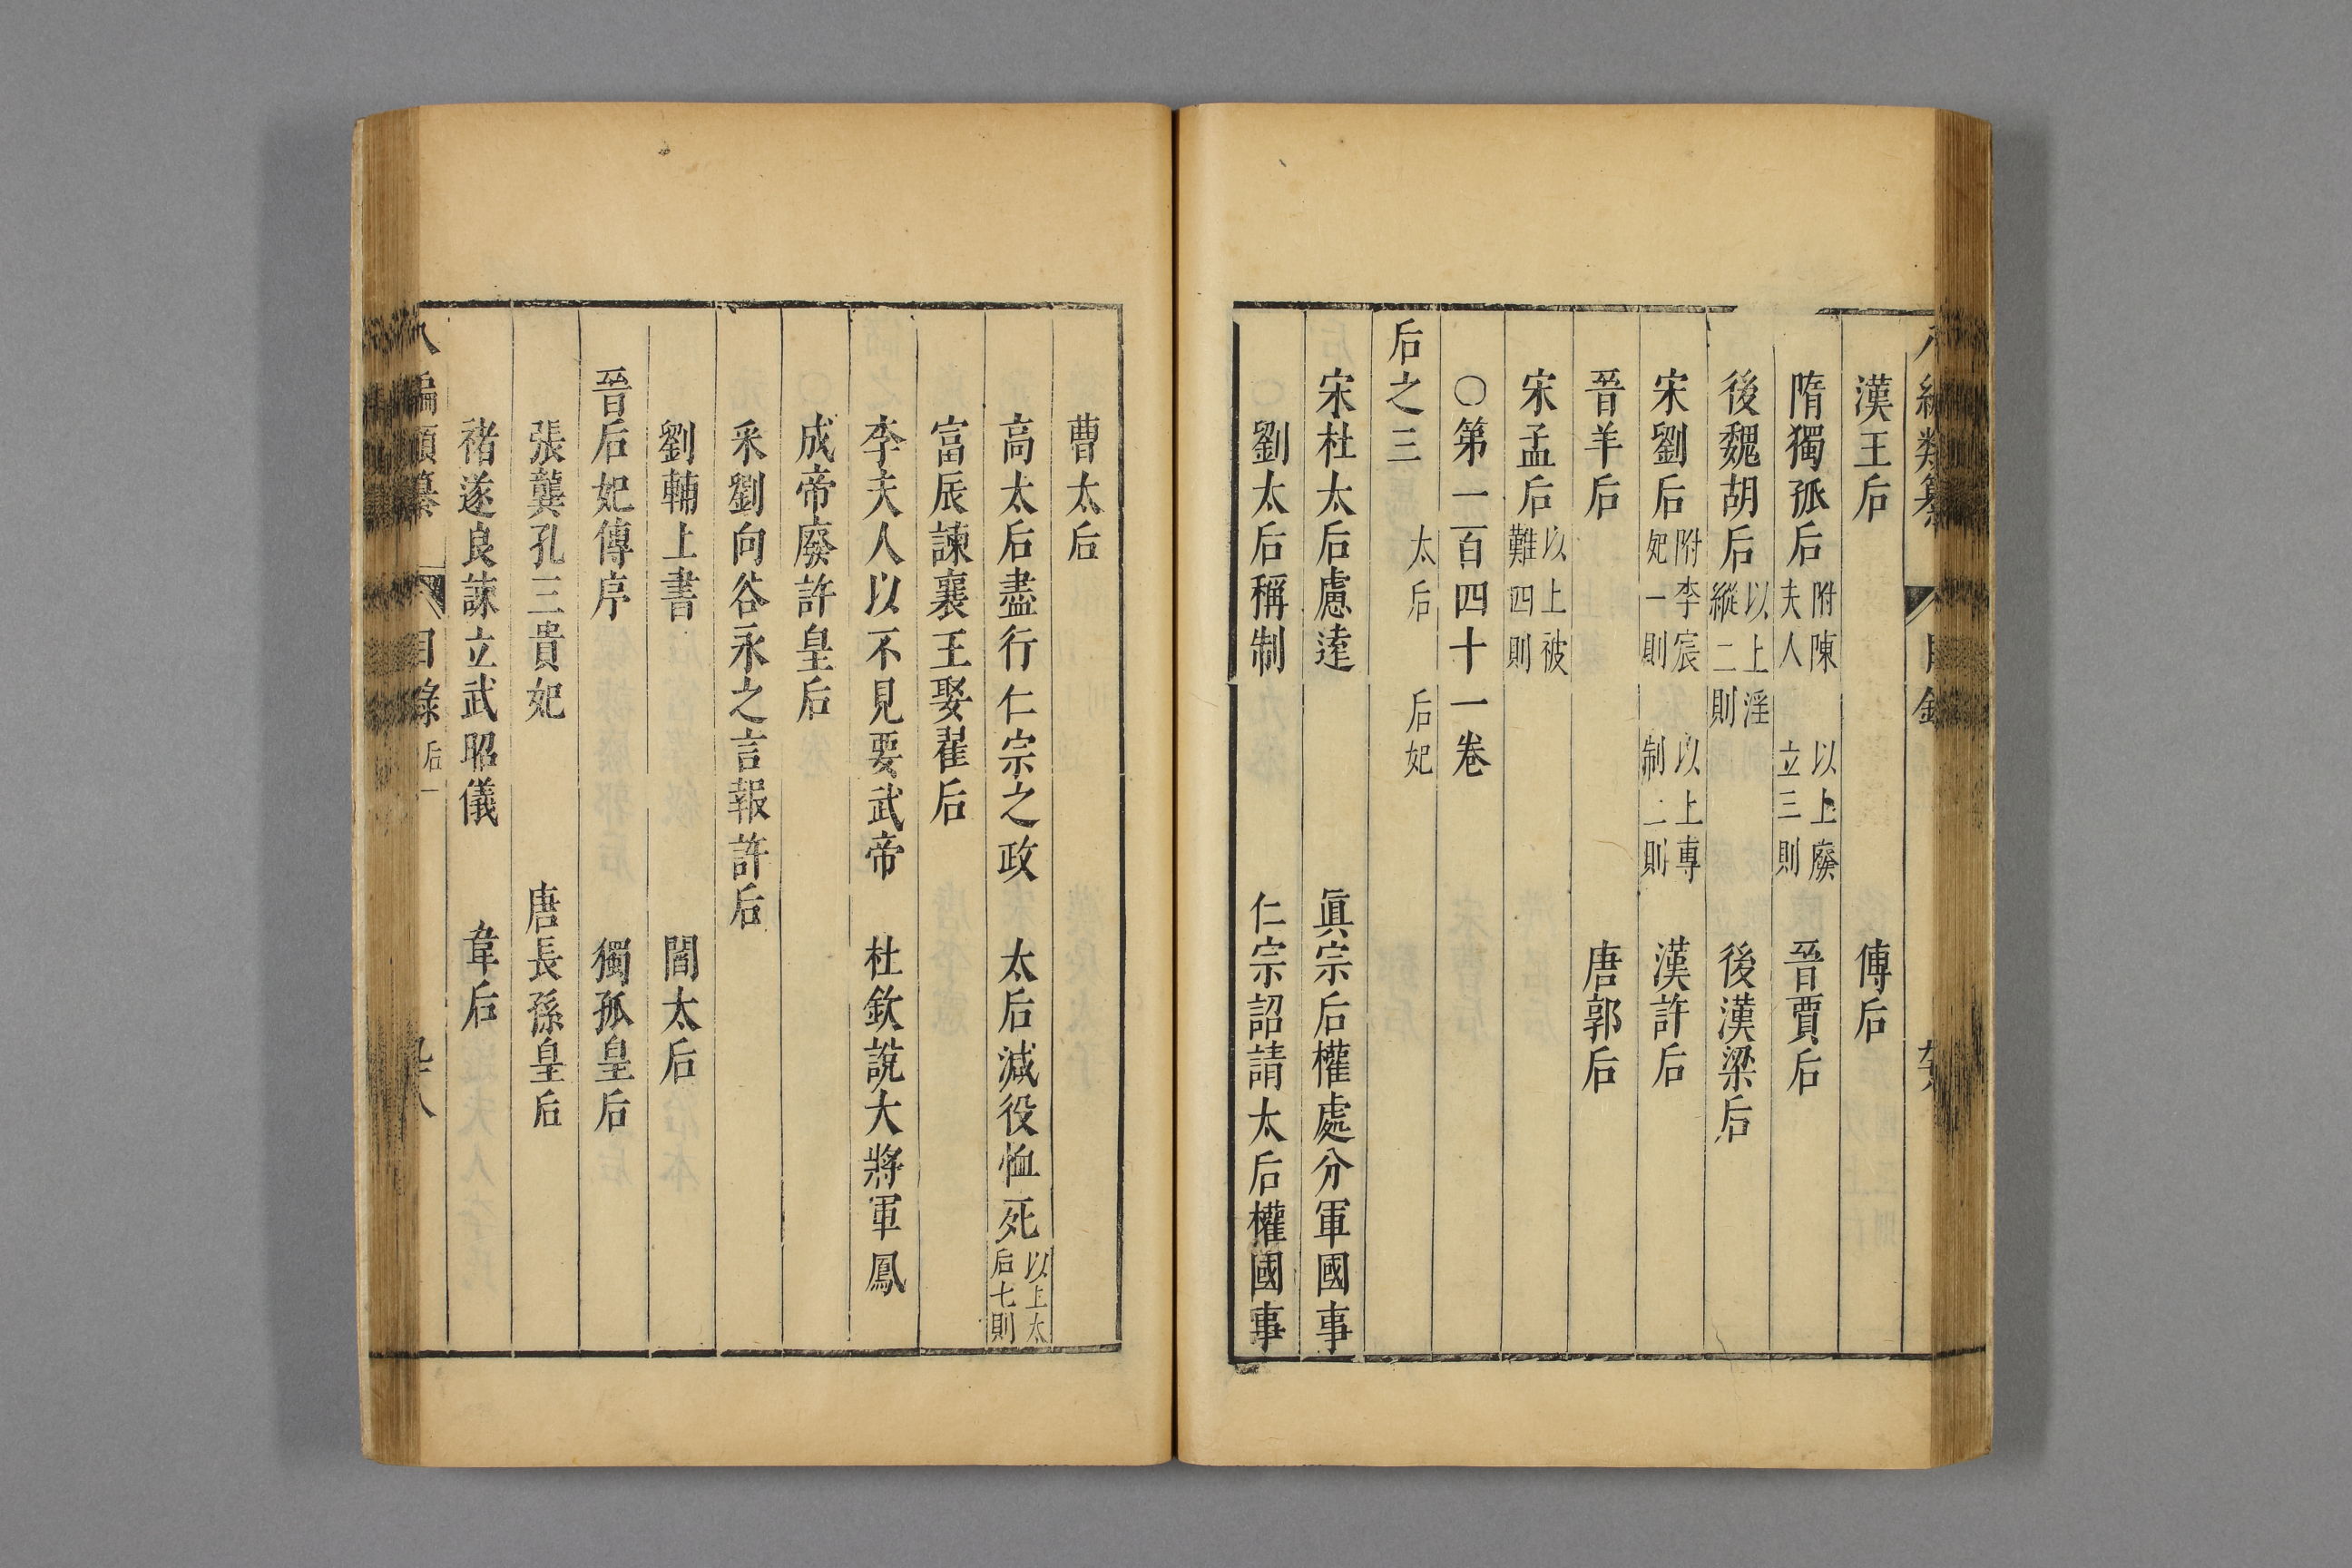 漢王后 傅后
隋獨孤后 附陳夫人 以上廢立三則 晉賈后
後魏胡后 以上淫縱二則 後漢梁后
宋劉后 附李宸妃一則 以上專制二則 漢許后
晉羊后 唐郭后
宋孟后 以上被難四則
○第一百四十一卷
后之三 太后 后妃
宋杜太后慮遠 眞宗后權處分軍國事
劉太后稱制 仁宗詔請太后權國事
曹太后
高太后盡行仁宗之政 太后減役恤死 以上太后七則
富辰諫襄王娶翟后
李夫人以不見要武帝 杜欽說大將軍鳳
成帝廢許皇后
采劉向谷永之言報許后
劉輔上書 閻太后
晉后妃傳序 獨孤皇后
張龔孔三貴妃 唐長孫皇后
褚遂良諫立武昭儀 韋后
八編類纂 目錄 后一